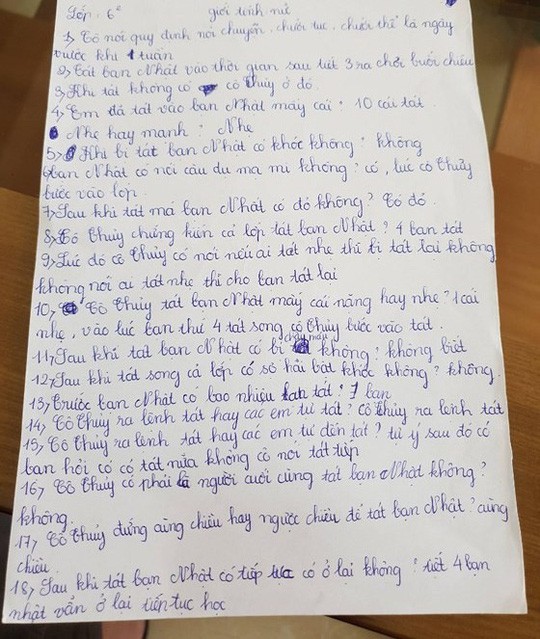 Lớp: 6² giới tính nữ
1, Cô nói quy định nói chuyện, chửi tục, chửi thề là ngày
trước khi 1 tuần
2, Tát bạn Nhật vào thời gian sau tiết 3 ra chơi buổi chiều
3, Khi tát không có cô Thủy ở đó.
4, Em đã tát vào bạn Nhật mấy cái? 10 cái tát
Nhẹ hay mạnh? Nhẹ
5, Khi bị tát bạn Nhật có khóc không? không
6, bạn Nhật có nói câu du ma mi không? có, lúc cô Thủy
bước vào lớp
7, Sau khi tát má bạn Nhật có đỏ không? Có đỏ
8, Cô Thủy chứng kiến cả lớp tát bạn Nhật? 4 bạn tát
9, Lúc đó cô Thủy có nói nếu ai tát nhẹ thì bị tát lại không
không nói ai tát nhẹ thì cho bạn tát lại
10, Cô Thủy tát bạn Nhật mấy cái nặng hay nhẹ? 1 cái
nhẹ, vào lúc bạn thứ 4 tát song cô Thủy bước vào tát.
11, Sau khi tát bạn Nhật có bị chảy máu không? không biết
12, Sau khi tát song cả lớp có sợ hãi bật khóc không? không.
13, Trước bạn Nhật có bao nhiêu bạn tát? 7 bạn
14, Cô Thủy ra lệnh tát hay các em tự tát? Cô Thủy ra lệnh tát
15, Cô Thủy ra lệnh tát hay các em tự đến tát? tự ý sau đó có
bạn hỏi cô có tát nữa không cô nói tát tiếp
16, Cô Thủy có phải là người cuối cùng tát bạn Nhật không?
không.
17, Cô Thủy đứng cùng chiều hay ngược chiều để tát bạn Nhật? cùng
chiều.
18, Sau khi tát bạn Nhật có tiếp tục có ở lại không? tiết 4 bạn
nhật vẫn ở lại tiếp tục học